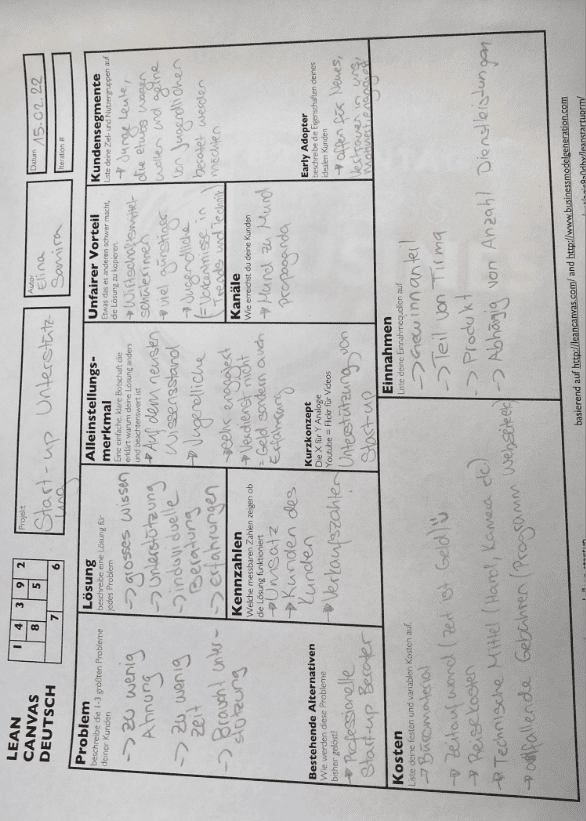 LEAN
CANVAS
DEUTSCH
1 4 3 9 2
8 5
7 6
Projekt
Start-up Unterstütz-
ung
Autor
Elina
Samira
Datum
15.02.22
Iteration #
Problem
beschreibe die 1-3 größten Probleme
deiner Kunden
-> zu wenig
Ahnung
-> zu wenig
zeit
-> Braucht Unter-
stützung
Bestehende Alternativen
Wie werden diese Probleme
bisher gelöst?
-> Professionelle
Start-up Berater
Lösung
beschreibe eine Lösung für
jedes Problem
-> grosses wissen
-> Unterstützung
-> individuelle
Beratung
-> erfahrungen
Kennzahlen
Welche messbaren Zahlen zeigen ob
die Lösung funktioniert
-> Umsatz
-> Kunden des
Kunden
-> Verkaufszahlen
Alleinstellungs-
merkmal
Eine einfache, klare Botschaft die
erklärt warum deine Lösung anders
und beachtenswert ist
-> Auf dem neusten
Wissensstand
-> Jugendliche
-> sehr engagiert
-> Verdienst nicht
Geld sondern auch
Erfahrung
Kurzkonzept
Die X für Y Analogie
Youtube = Flickr für Videos
Unterstützung von
Start-up
Unfairer Vorteil
Etwas das es anderen schwer macht,
die Lösung zu kopieren
-> Wirtschaftsmittel-
schülerinnen
-> viel günstiger
-> Jugendliche
(= Vorkenntnisse in
Trends und Technik)
Kanäle
Wie erreichst du deine Kunden
-> Mund zu Mund
propaganda
Kundensegmente
Liste deine Ziel- und Nutzergruppen auf
-> Junge Leute,
die etwas wagen
wollen und gerne
von Jugendlichen
beraten werden
möchten
Early Adopter
beschreibe die Eigenschaften deines
idealen Kunden
-> offen für Neues,
Vertrauen in uns,
Kosten
Liste deine festen und variablen Kosten auf.
-> Büromaterial
-> Zeitaufwand (zeit ist Geld)
-> Reisekosten
-> Technische Mittel (Handy, Kamera etc)
-> anfallende Gebühren (Programm, Webseite etc)
Einnahmen
Liste deine Einnahmequellen auf
-> Gewinnanteil
-> Teil von Firma
-> Produkt
-> Abhängig von Anzahl Dienstleistungen
basierend auf http://leancanvas.com/ and http://www.businessmodelgeneration.com